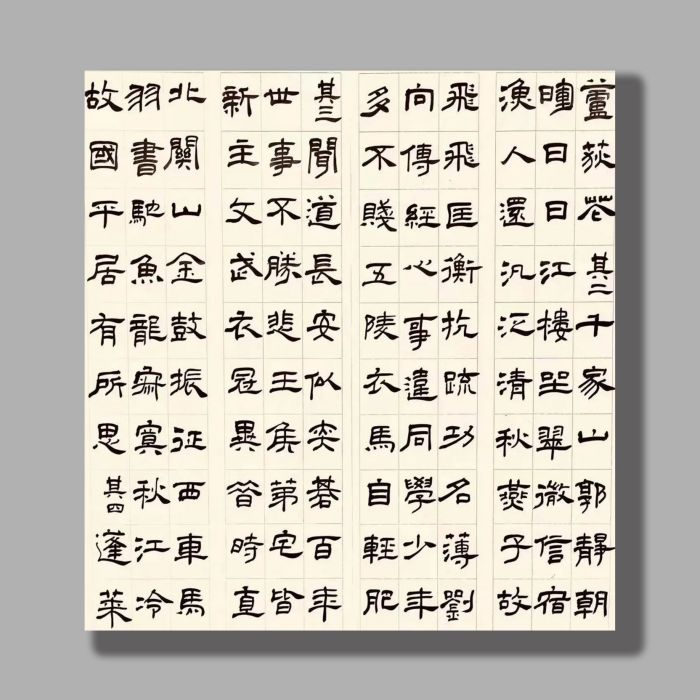 蘆荻花其二千家山郭靜朝
暉日日江樓坐翠微信宿
漁人還汎泛清秋燕子故
飛飛匡衡抗疏功名薄劉
向傳經心事違同學少年
多不賤五陵衣馬自輕肥
其三聞道長安似奕碁百年
世事不勝悲王侯第宅皆
新主文武衣冠異昔時直
北關山金鼓振征西車馬
羽書馳魚龍寂寞秋江冷
故國平居有所思其四蓬萊